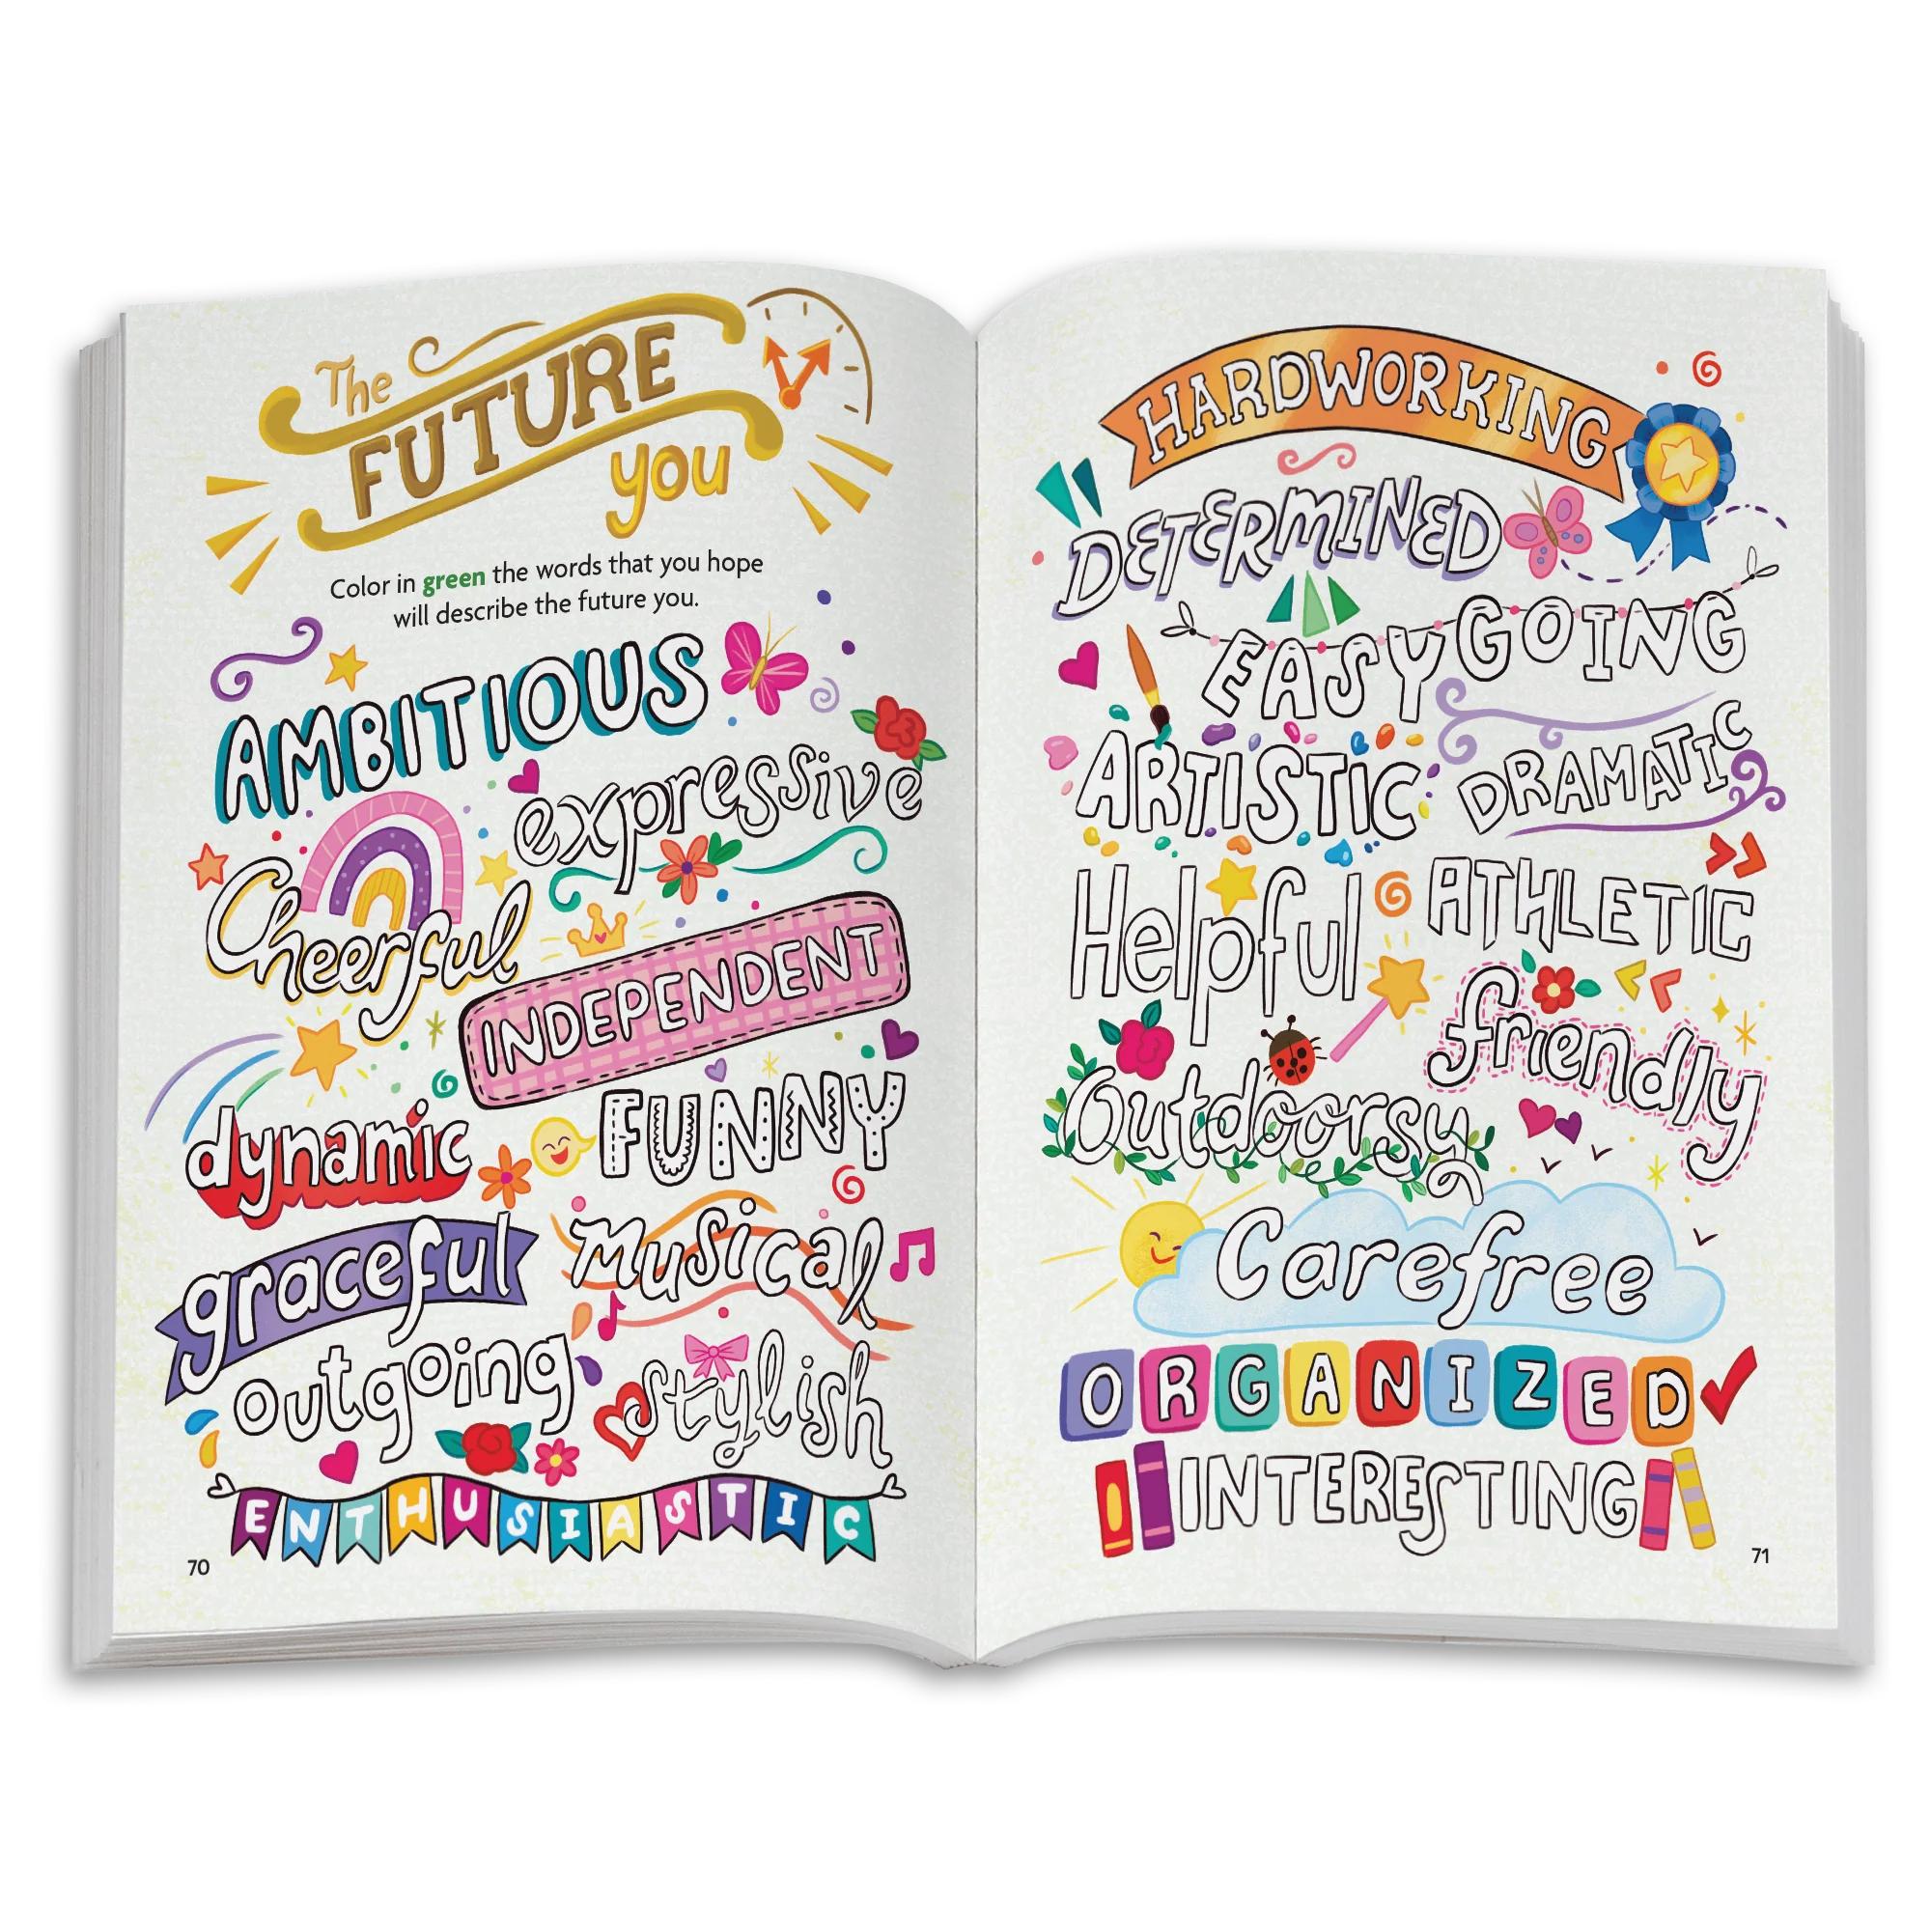 The
FUTURE
you
Color in green the words that you hope
will describe the future you.
AMBITIOUS
expressive
Cheerful
INDEPENDENT
dynamic
FUNNY
graceful
musical
outgoing
stylish
ENTHUSIASTIC
70
HARDWORKING
DETERMINED
EASYGOING
ARTISTIC
DRAMATIC
Helpful
ATHLETIC
friendly
Outdoorsy
Carefree
ORGANIZED
INTERESTING
71